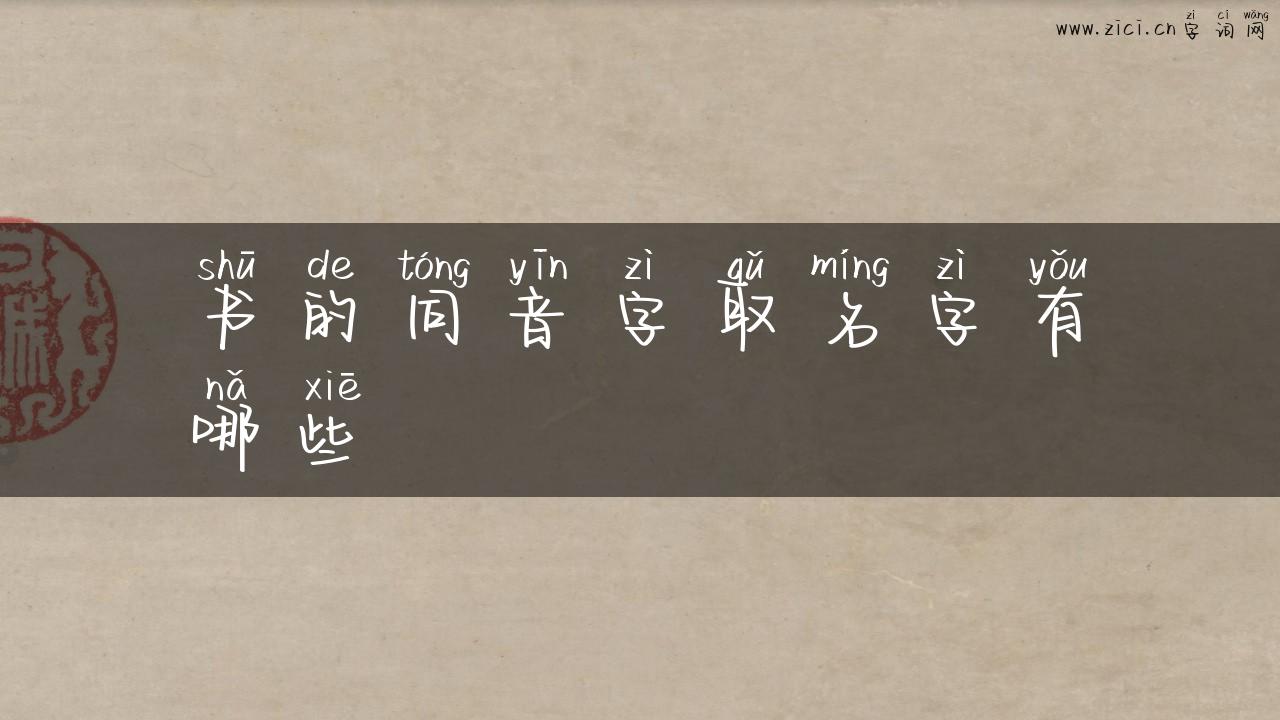 zì cí wǎng
www.zici.cn 字词网
shū de tóng yīn zì qǔ míng zì yǒu
书的同音字取名字有
nǎ xiē
哪些